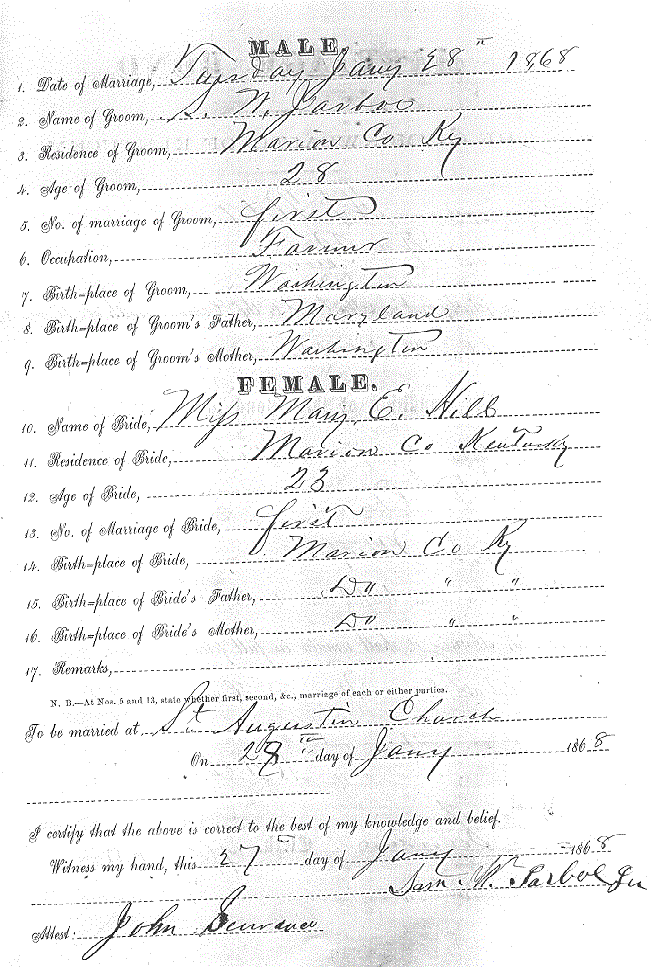 MALE.
1. Date of Marriage, Tuesday Jany 28th 1868
2. Name of Groom, S. W. Jarboe
3. Residence of Groom, Marion Co Ky
4. Age of Groom, 28
5. No. of marriage of Groom, first
6. Occupation, Farmer
7. Birth=place of Groom, Washington
8. Birth=place of Groom's Father, Maryland
9. Birth=place of Groom's Mother, Washington
FEMALE.
10. Name of Bride, Miss Mary E. Hill
11. Residence of Bride, Marion Co Kentucky
12. Age of Bride, 23
13. No. of Marriage of Bride, first
14. Birth=place of Bride, Marion Co Ky
15. Birth=place of Bride's Father, Do " "
16. Birth=place of Bride's Mother, Do " "
17. Remarks,
N. B.—At Nos. 5 and 13, state whether first, second, &c., marriage of each or either parties.
To be married at St Augustin Church
On 28th day of Jany 1868
I certify that the above is correct to the best of my knowledge and belief.
Witness my hand, this 27 day of Jany 1868
Sam W. Jarboe Jr
Attest: John